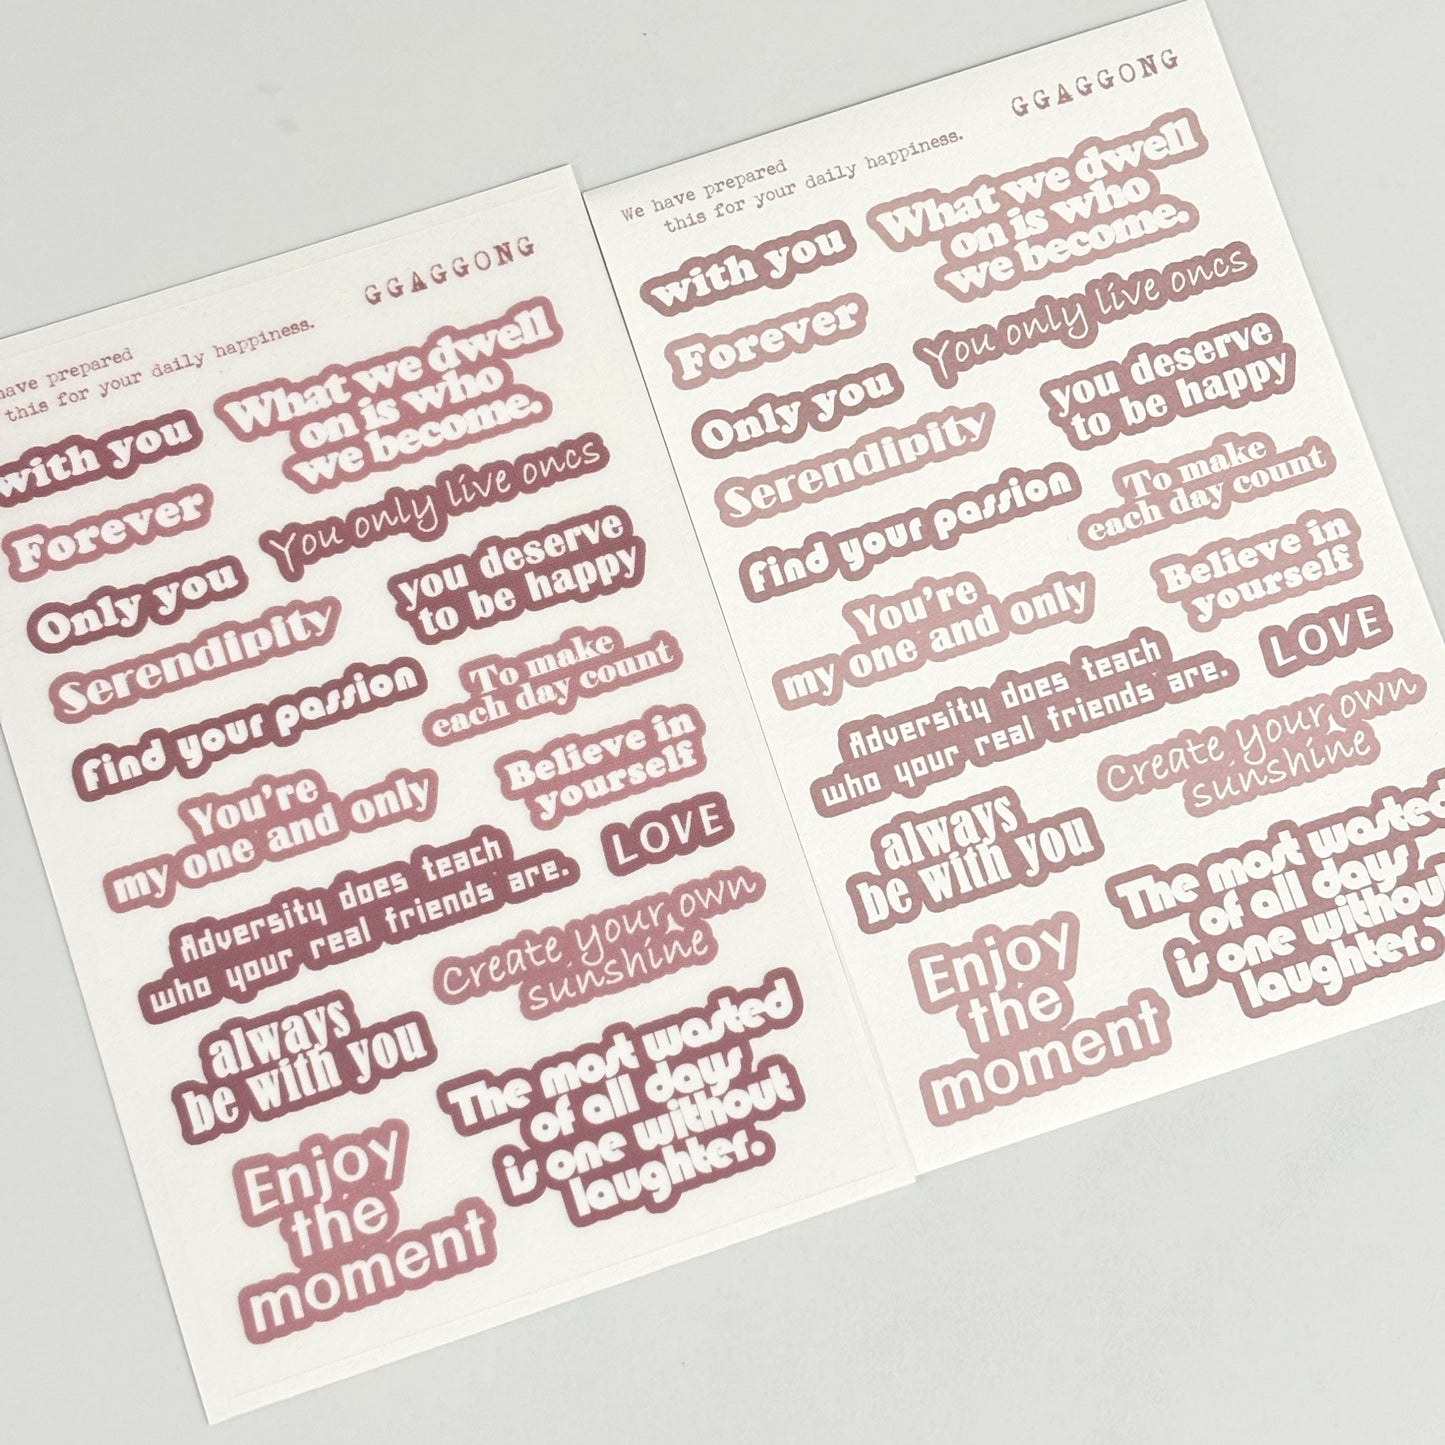 GGAGGONG
have prepared
this for your daily happiness.
with you
What we dwell
on is who
we become.
Forever
You only live oncs
Only you
you deserve
to be happy
Serendipity
To make
each day count
find your passion
Believe in
yourself
You're
my one and only
LOVE
Adversity does teach
who your real friends are.
Create your own
sunshine
always
be with you
The most wasted
of all days
is one without
laughter.
Enjoy
the
moment
GGAGGONG
We have prepared
this for your daily happiness.
with you
What we dwell
on is who
we become.
Forever
You only live oncs
Only you
you deserve
to be happy
Serendipity
To make
each day count
find your passion
Believe in
yourself
You're
my one and only
LOVE
Adversity does teach
who your real friends are.
Create your own
sunshine
always
be with you
The most wasted
of all days
is one without
laughter.
Enjoy
the
moment